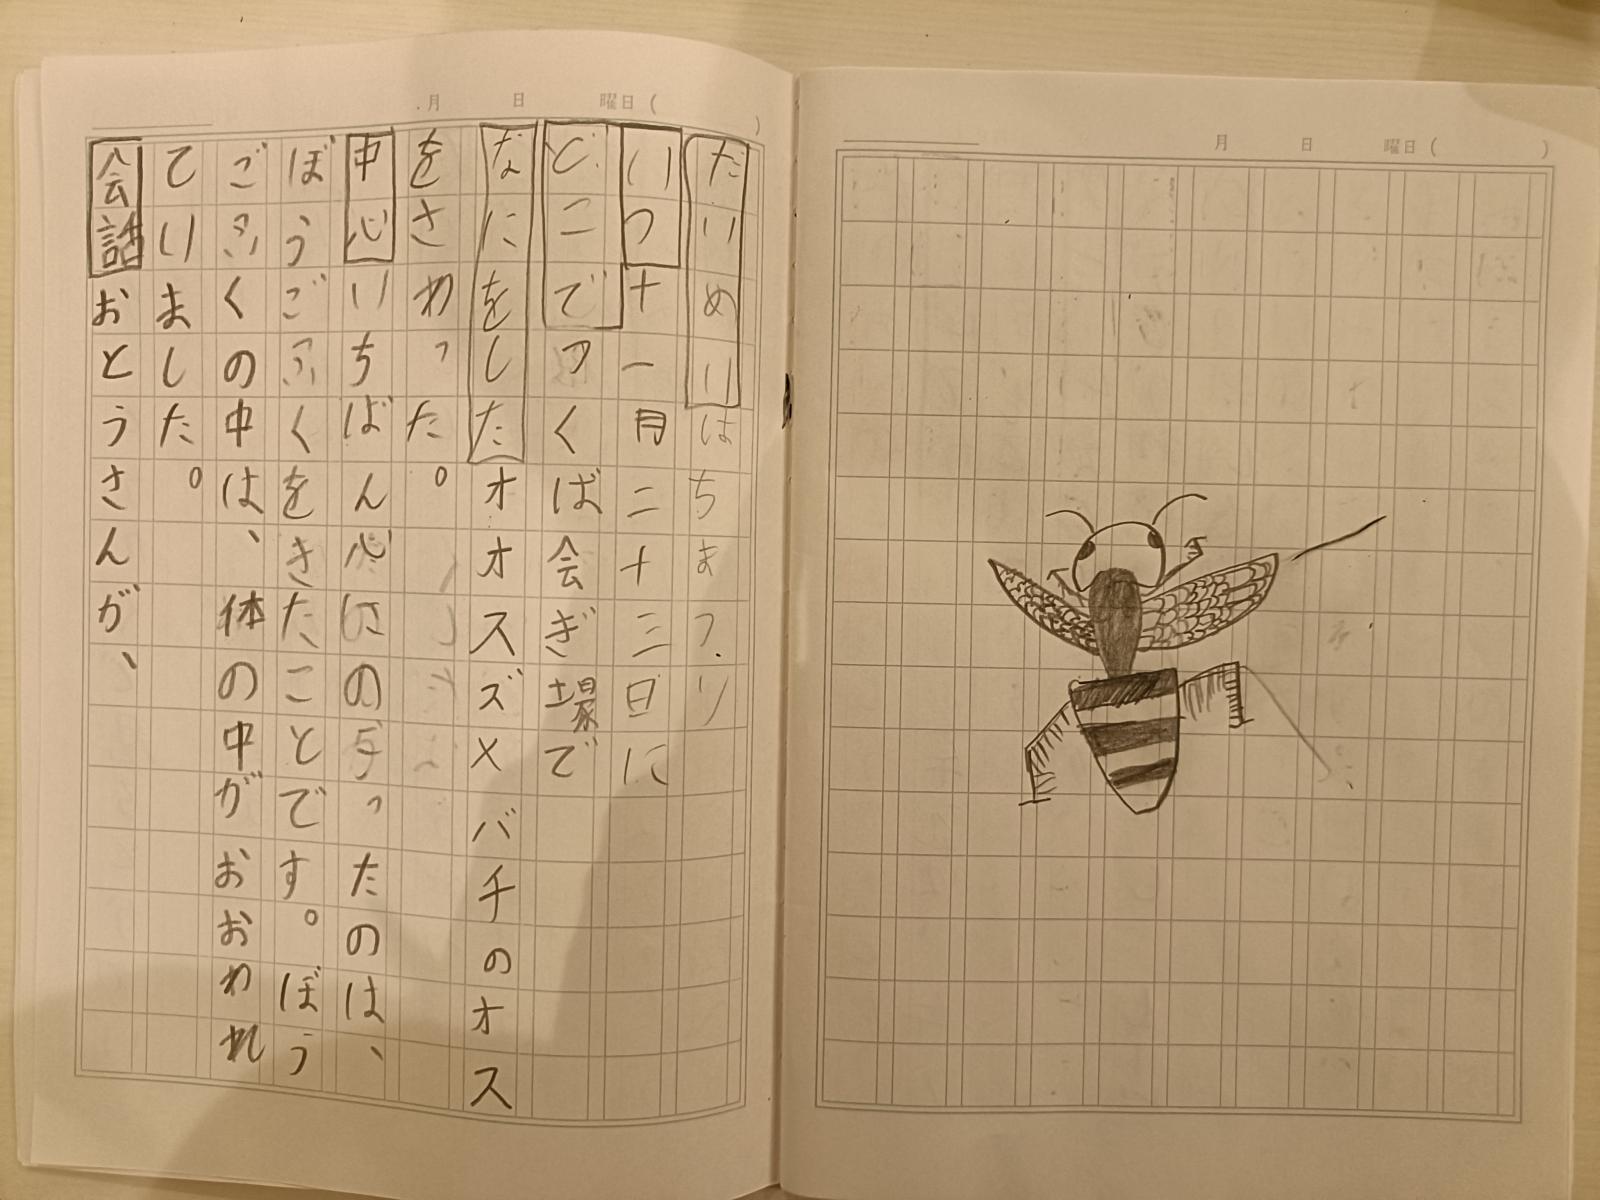 月 日 曜日( )
だいめいはちまつり
いつ十一月二十三日に
どこでつくば会ぎ場で
なにをしたオオスズメバチのオス
をさわった。
中心いちばん心にのこったのは、
ぼうごふくをきたことです。ぼう
ごふくの中は、体の中がおおわれ
ていました。
会話おとうさんが、
月 日 曜日( )